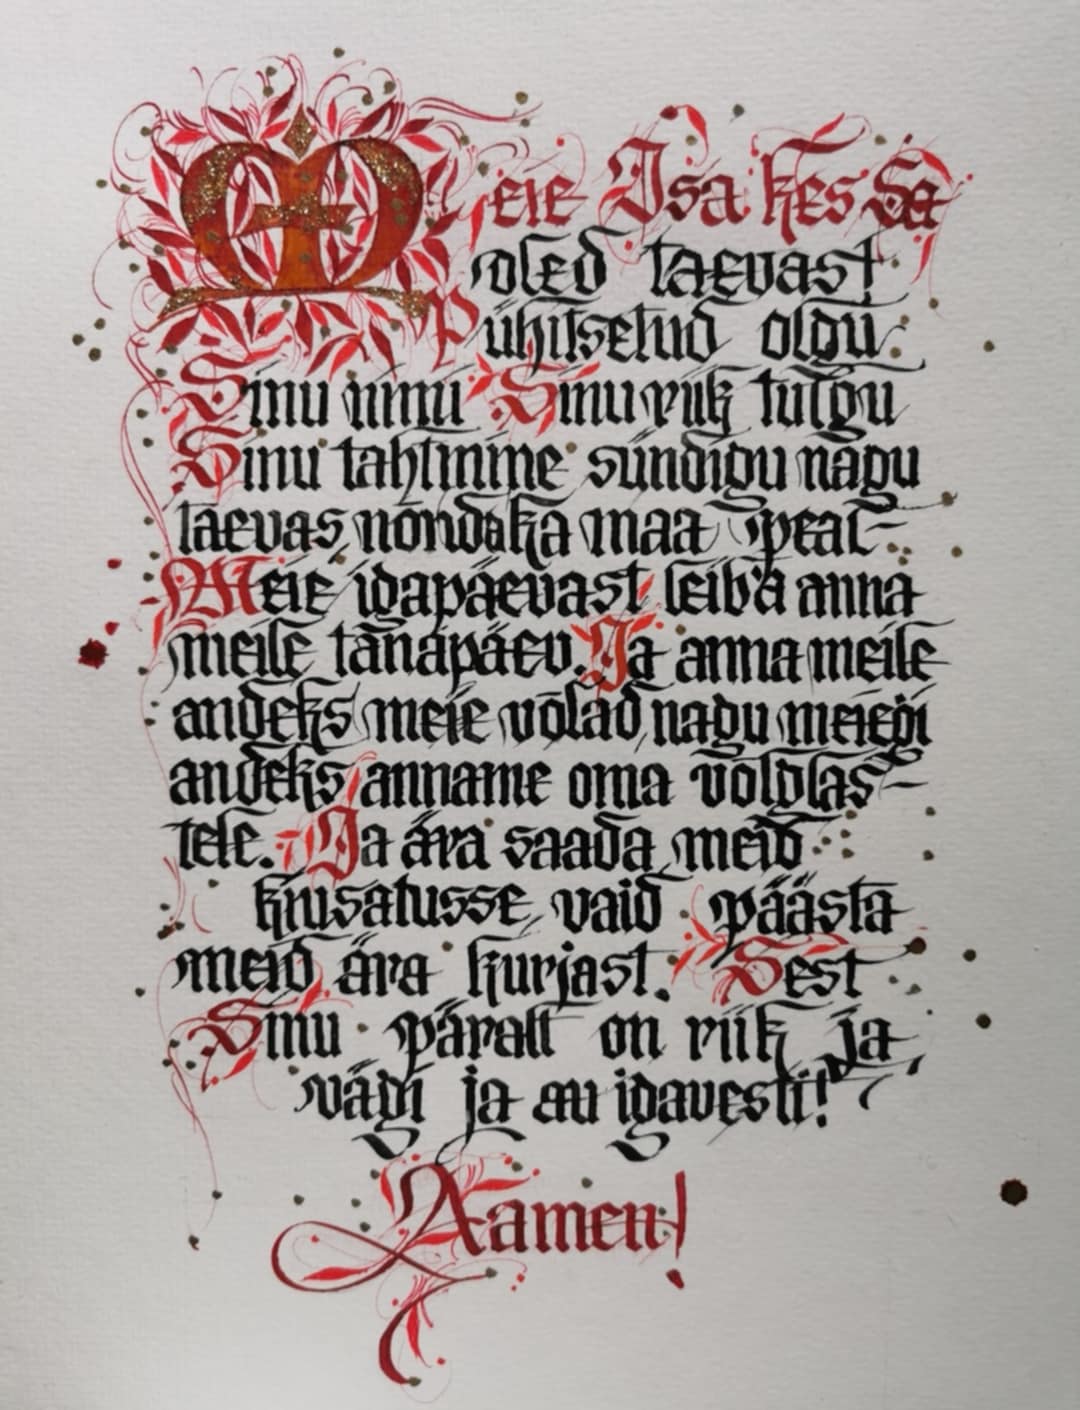 Meie Isa kes Sa
oled taevast
Pühitsetud olgu
Sinu nimi Sinu riik tulgu
Sinu tahtmine sündigu nagu
taevas nõndaka maa peal-
Meie igapäevast leiba anna
meile tänapäev. Ja anna meile
andeks meie võlad, nagu meiegi
andeks anname oma võlglas-
tele. Ja ära saada meid
kiusatusse, vaid päästa
meid ära kurjast. Sest
Sinu päralt on riik ja
vägi ja au igavesti!
Aamen!